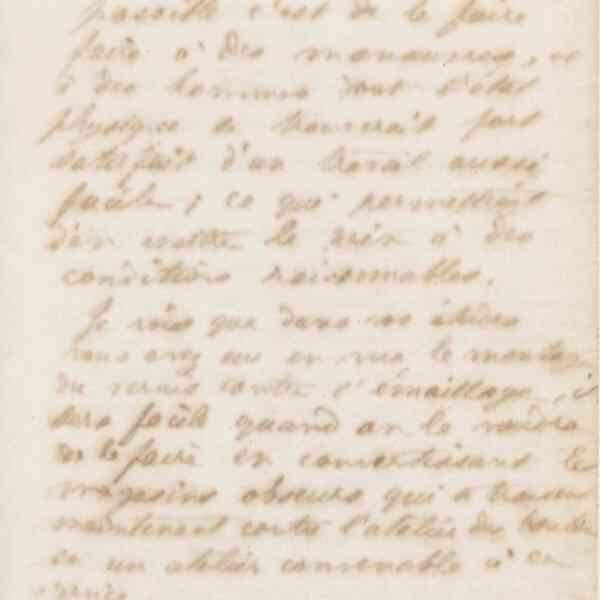 possible c'est de le faire
faire à des manœuvres, et
à des hommes dont l'état
physique se trouverait fort
satisfait d'un travail aussi
facile ; ce qui permettrait
d'en mettre le prix à des
conditions raisonnables.
Je vois que dans vos études
vous avez eu en vue le
du contre l'émaillage, il
sera facile quand on le voudra
de le faire en convertissant les
magasins obscurs qui se trouvent
maintenant contre l'atelier des
en un atelier convenable à ce